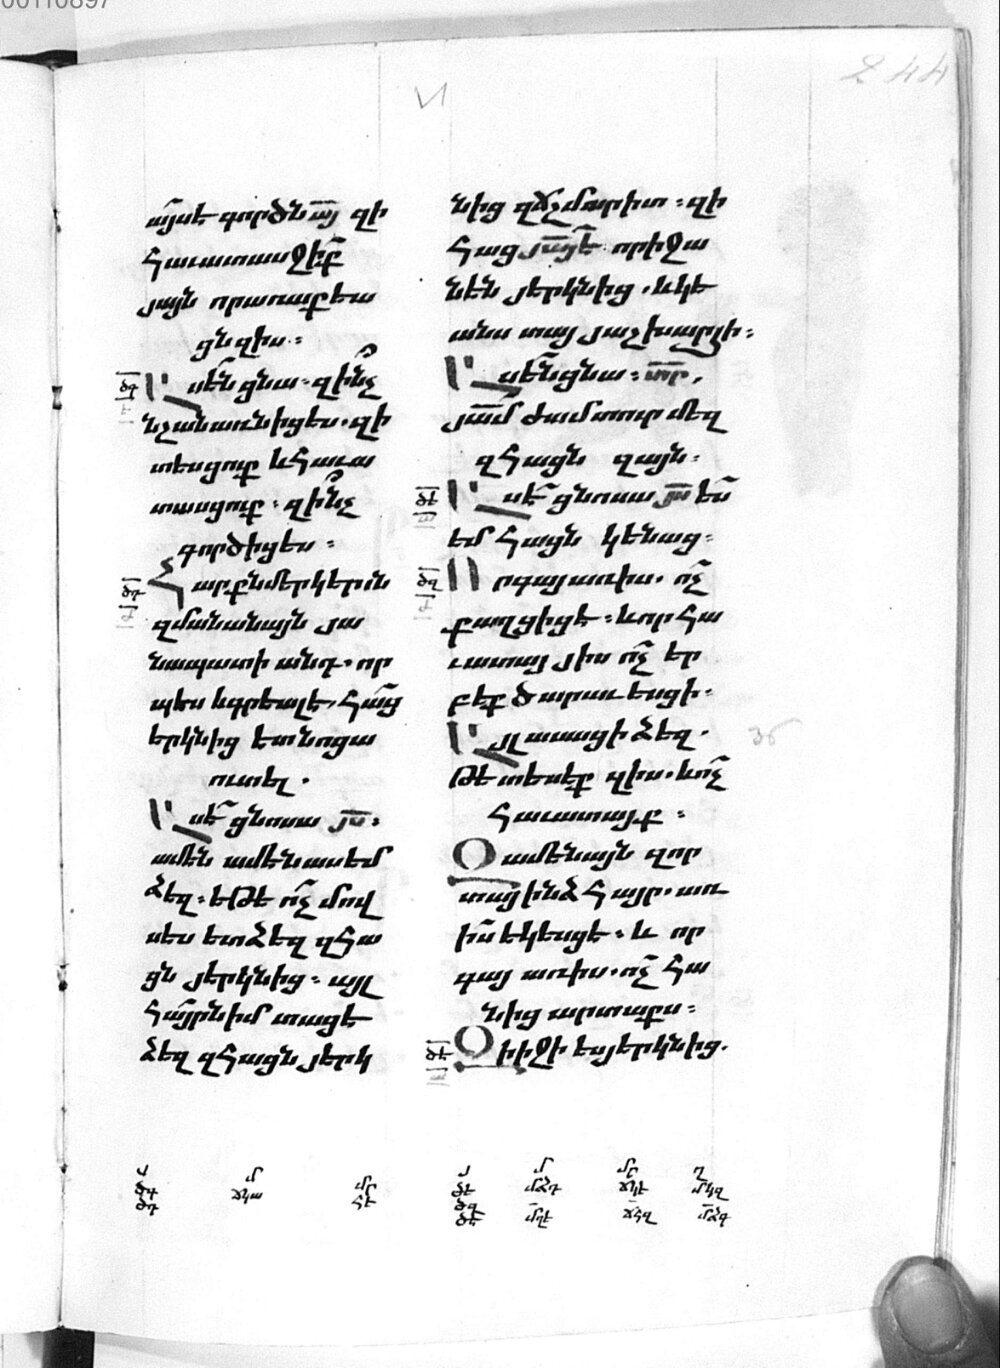 00110897
244
այսէ գործն այ զի
հաւատասջիք
յայն որառաքեա
ցն զիս ։
Ասեն ցնա ։ զինչ
նշանառնիցես . զի
տեսցուք և հաւա
տասցուք ։ զինչ
գործիցես ։
Հարքն մեր կերին
զմանանայն յա
նապատի անդ . որ
պես և գրեալ է . հաց
երկնից ետ նոցա
ուտել .
Ասէ ցնոսա յս ։
ամէն ամէն ասեմ
ձեզ ։ եթե ոչ մով
սես ետ ձեզ զհա
ցն յերկնից ։ այլ
հայրն իմ տացե
ձեզ զհացն յերկ
նից զճշմարիտ ։ զի
հաց յայե որիջա
նէն յերկնից . և կե
անս տայ յաշխարհի ։
Ասեն ցնա ։ տր .
յամ ժամ տուր մեզ
զհացն զայն ։
Ասէ ցնոսա յս ես
եմ հացն կենաց ։
Որ գայ առիս . ոչ
քաղցիցե ։ և որ հա
ւատայ յիս ոչ եր
բեք ծարաւեսցի ։
Այլ ասացի ձեզ .
թե տեսէք զիս . և ոչ
հաւատայք ։
Օամենայն զոր
տայ ինձ հայր . առ
իս եկեսցե ։ և որ
գայ առիս . ոչ հա
նից արտաքս ։
Օի իջի ես յերկնից .